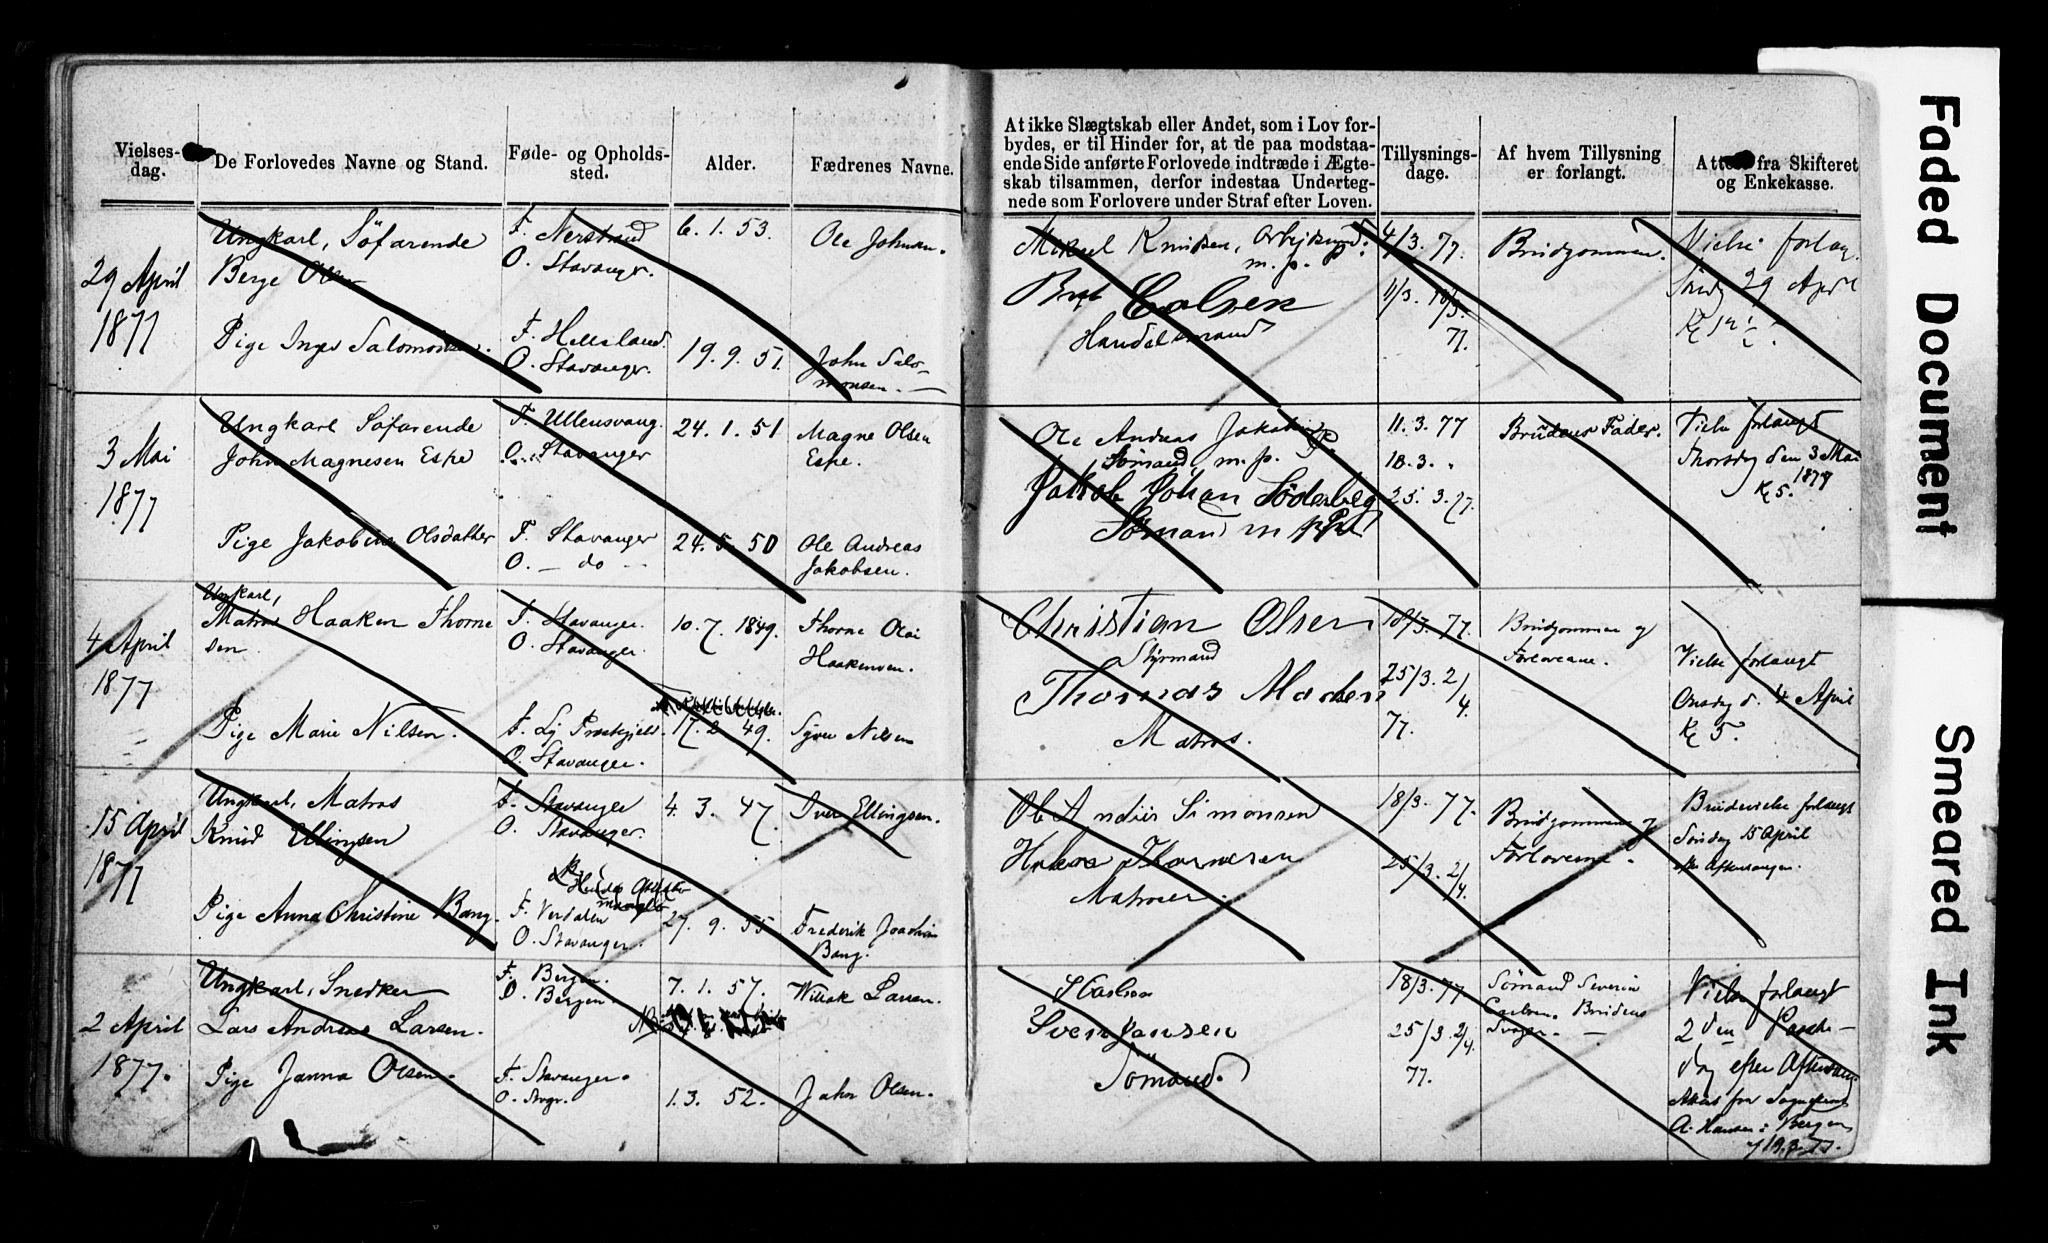 Vielses-
dag.
De Forlovedes Navne og Stand.
Føde- og Opholds-
sted.
Alder.
Fædrenes Navne.
At ikke Slægtskab eller Andet, som i Lov for-
bydes, er til Hinder for, at de paa modstaa-
ende Side anførte Forlovede indtræde i Ægte-
skab tilsammen, derfor indestaa Underteg-
nede som Forlovere under Straf efter Loven.
Tillysnings-
dage.
Af hvem Tillysning
er forlangt.
fra Skifteret
og Enkekasse.
29 April
1877
Ungkarl, Söfarende
Berge Olsen
Pige Inger
F. Nerstrand
O. Stavanger.
F. Helleland.
O. Stavanger.
6. 1. 53.
19. 9. 51.
Ole Johnsen.
John Salo-
monsen.
Knudsen, Arbeidsmd.
m. p. P.
Handelsmand
4/3. 77.
11/3. 18/3.
77.
Brudgommen.
Vielse forlang
29 April
3 Mai
1877
Ungkarl Söfarende
John Magnesen Espe
Pige Jakobine Olsdatter
F. Ullensvang.
O. Stavanger
F. Stavanger
O. — do —
24. 1. 51
24. 5. 50
Magne Olsen
Espe.
Ole Andreas
Jakobsen.
Ole Andreas Jakobsen
Sömand m. p. P.
Jakob Johan Söderberg
Sömand m
11. 3. 77
18. 3. "
25. 3. 77.
Brudens Fader.
Vielse forlangt
Thorsdag den 3 Mai
1877
K 5.
4 April
1877
Ungkarl,
Matros Haaken Thorne
sen.
Pige Marie Nilsen.
F. Stavanger.
O. Stavanger.
O. Stavanger.
10. 7. 1849.
17. 2 49.
Thorne Olai
Haakensen.
Syver Nilsen
Christian Olsen
Styrmand
Thomas Madsen
Matros.
18/3. 77.
25/3. 2/4.
77.
Brudgommen og
Forloverne.
Vielse forlangt
Onsdag d. 4 April
K 5.
15 April
1877
Ungkarl, Matros
Knud Ellingsen
Pige Anna Christine Bang.
F. Stavanger
O. Stavanger.
F. Verdalen
O. Stavanger.
4. 3. 47.
27. 9. 55
Iver Ellingsen.
Frederik Joachim
Bang.
Ole Andreas Simonsen
Thornesen
Matroser.
18/3. 77.
25/3. 2/4.
Brudgommen og
Forloverne.
Brudevielse forlangt
Söndag 15 April
efter Aftensangen.
2 April
1877.
Ungkarl, Snedker
Lars Andreas Larsen.
Pige Janna Olsen.
F. Bergen.
O. Bergen.
F. Stavanger.
O. Stvgr.
7. 1. 57.
1. 3. 52.
Willak Larsen.
John Olsen.
S Carlsen
Sven Jansen
Sömand.
18/3. 77.
25/3. 2/4.
77.
Sömand Severin
Carlsen. Brudens
Svoger. —
Vielse forlangt
2 den Paaske-
dag efter Aftensang.
Attest fra Sognepræst
A. Hansen i Bergen
af 19.3.77.
Faded Document
Smeared Ink